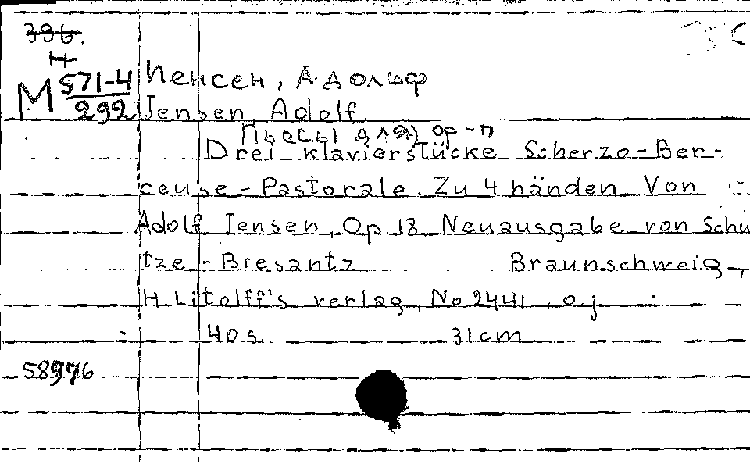 396.
H
M 571-4
292
Иенсен, Адольф
Jensen, Adolf
Пьесы для ор-п
Drei klavierstücke Scherzo-Ber-
ceuse-Pastorale. Zu 4 händen Von
Adolf Iensen, Op 18 Neuausgabe von Schu
tze-Bresantz Braunschweig,
H Litolff's verlag, No 2441, o.j
40 s. 31cm
58976